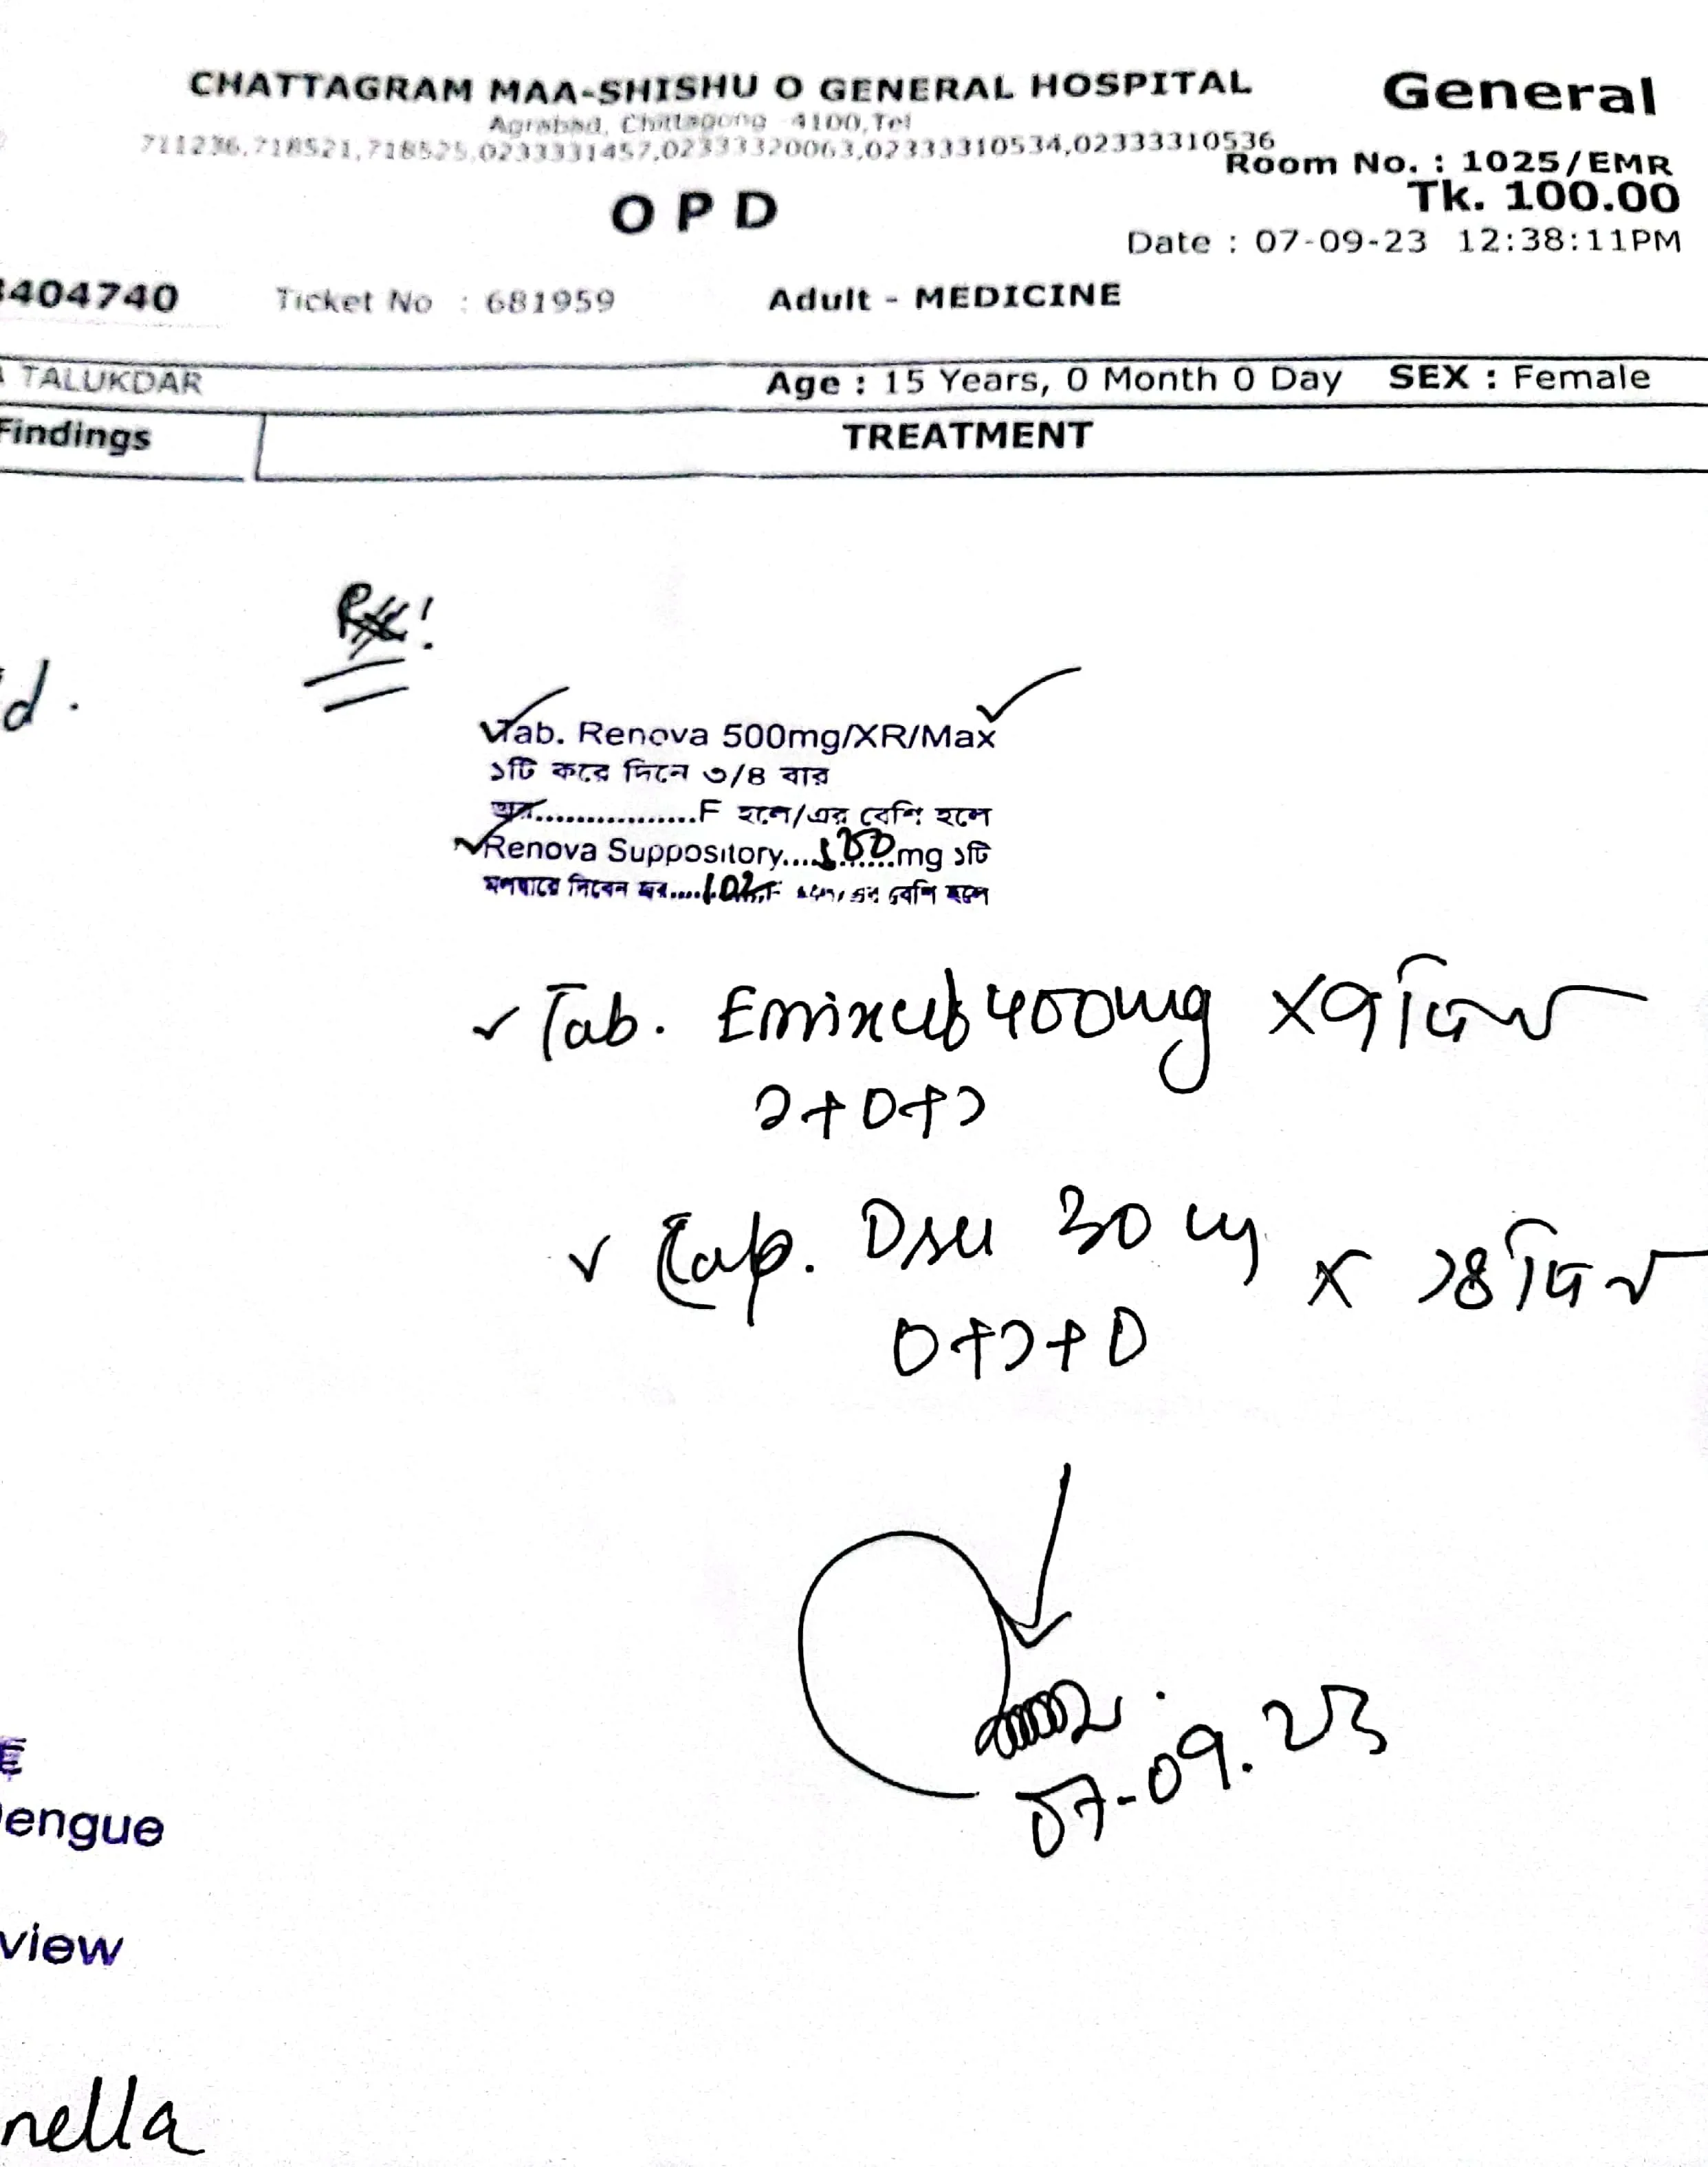 CHATTAGRAM MAA-SHISHU O GENERAL HOSPITAL
General
Agrabad, Chittagong 4100, Tel
711236,718521,718525,0233331457,02333320063,02333310534,02333310536
Room No. : 1025/EMR
Tk. 100.00
O P D
Date : 07-09-23 12:38:11PM
404740 Ticket No : 681959 Adult - MEDICINE
TALUKDAR Age : 15 Years, 0 Month 0 Day SEX : Female
Findings TREATMENT
d.
Tab. Renova 500mg/XR/Max
১টি করে দিনে ৩/৪ বার
F হলে/এর বেশি হলে
Renova Suppository.... mg ১টি
মলদ্বারে দিবেন জ্বর....102 F হলে/এর বেশি হলে
Tab. 400mg X ৭ দিন
১+0+১
Cap. 30 mg X ১৪ দিন
0+১+0
07-09.23
engue
view
nella